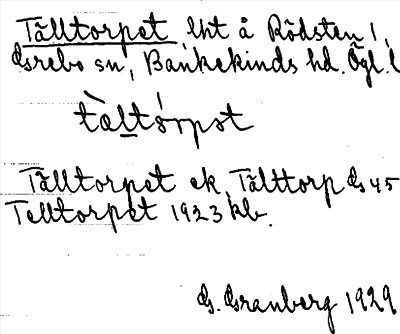 Tälltorpet, lht å Rödsten 1,
Grebo sn, Bankekinds hd. Ögl. l
tæ̀ltórpət
Tälltorpet ek, Tälttorp Gs 45
Telltorpet 1923 kb.
G. Granberg 1929